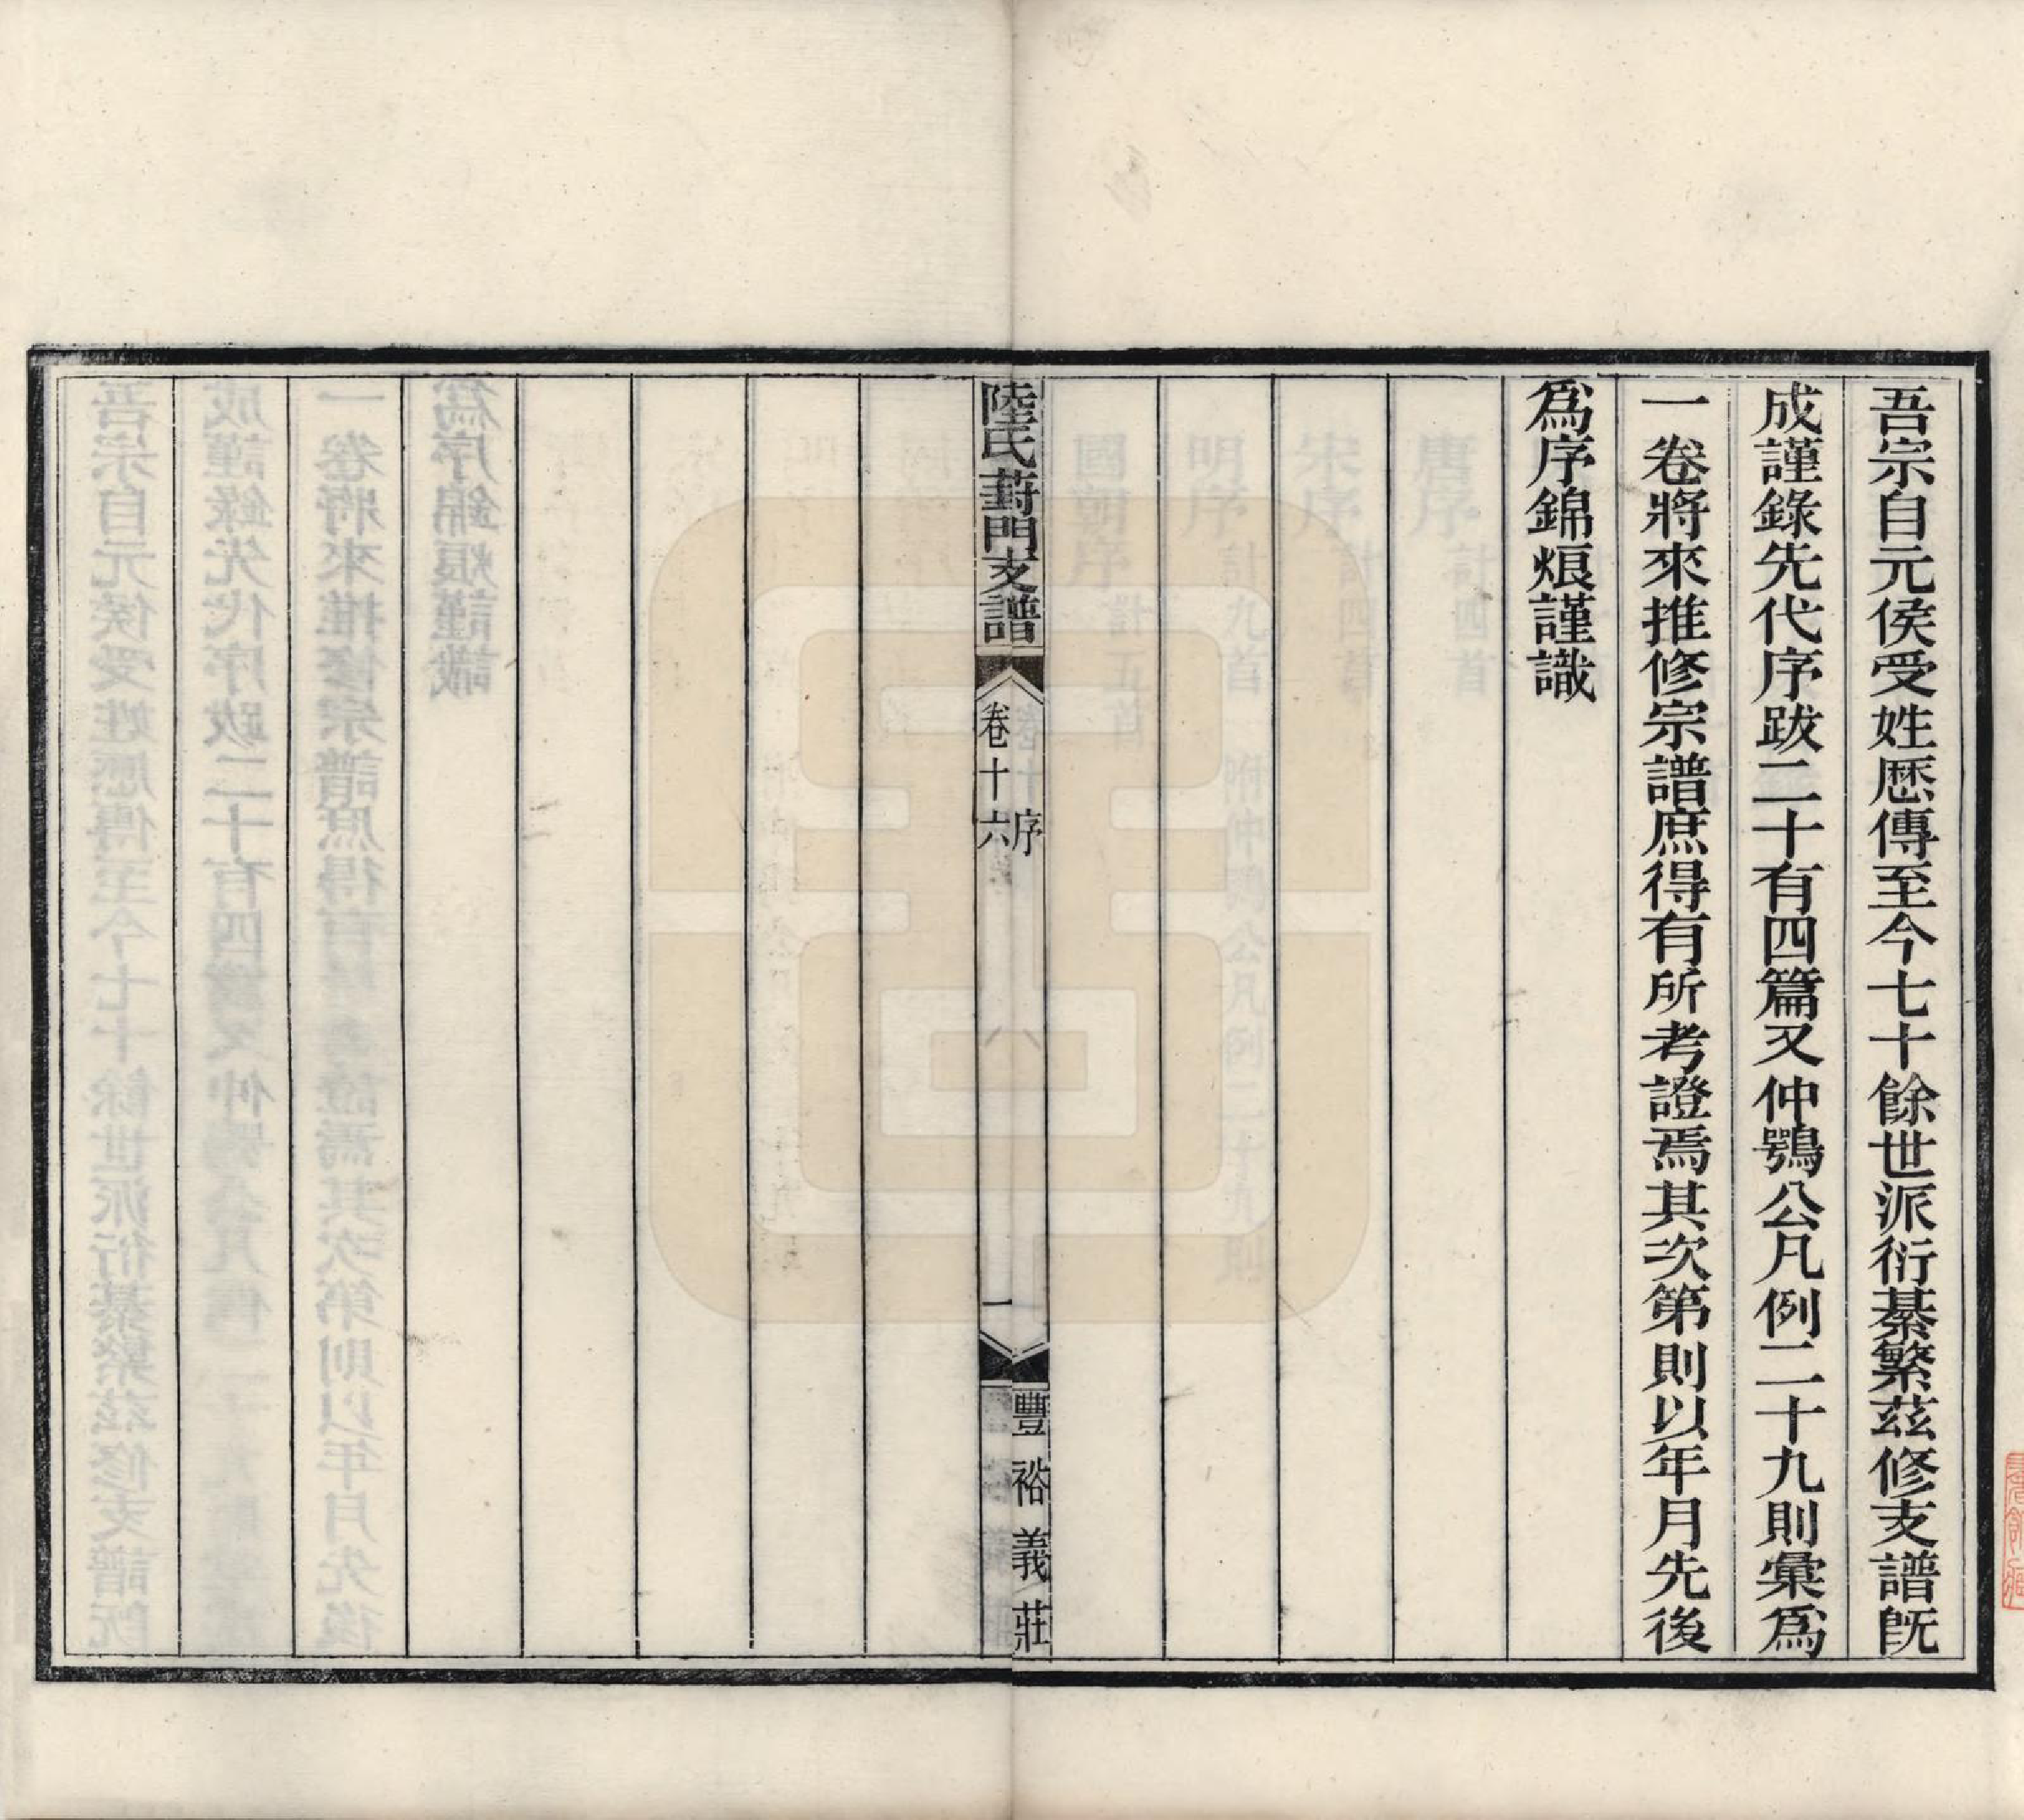 吾宗自元侯受姓歷傳至今七十餘世派衍綦繁茲修支譜既
成謹錄先代序跋二十有四篇又仲鶚公凡例二十九則彙爲
一卷將來推修宗譜庶得有所考證焉其次第則以年月先後
爲序錦烺謹識
陸氏葑門支譜 卷十六 序 一 豐裕義莊